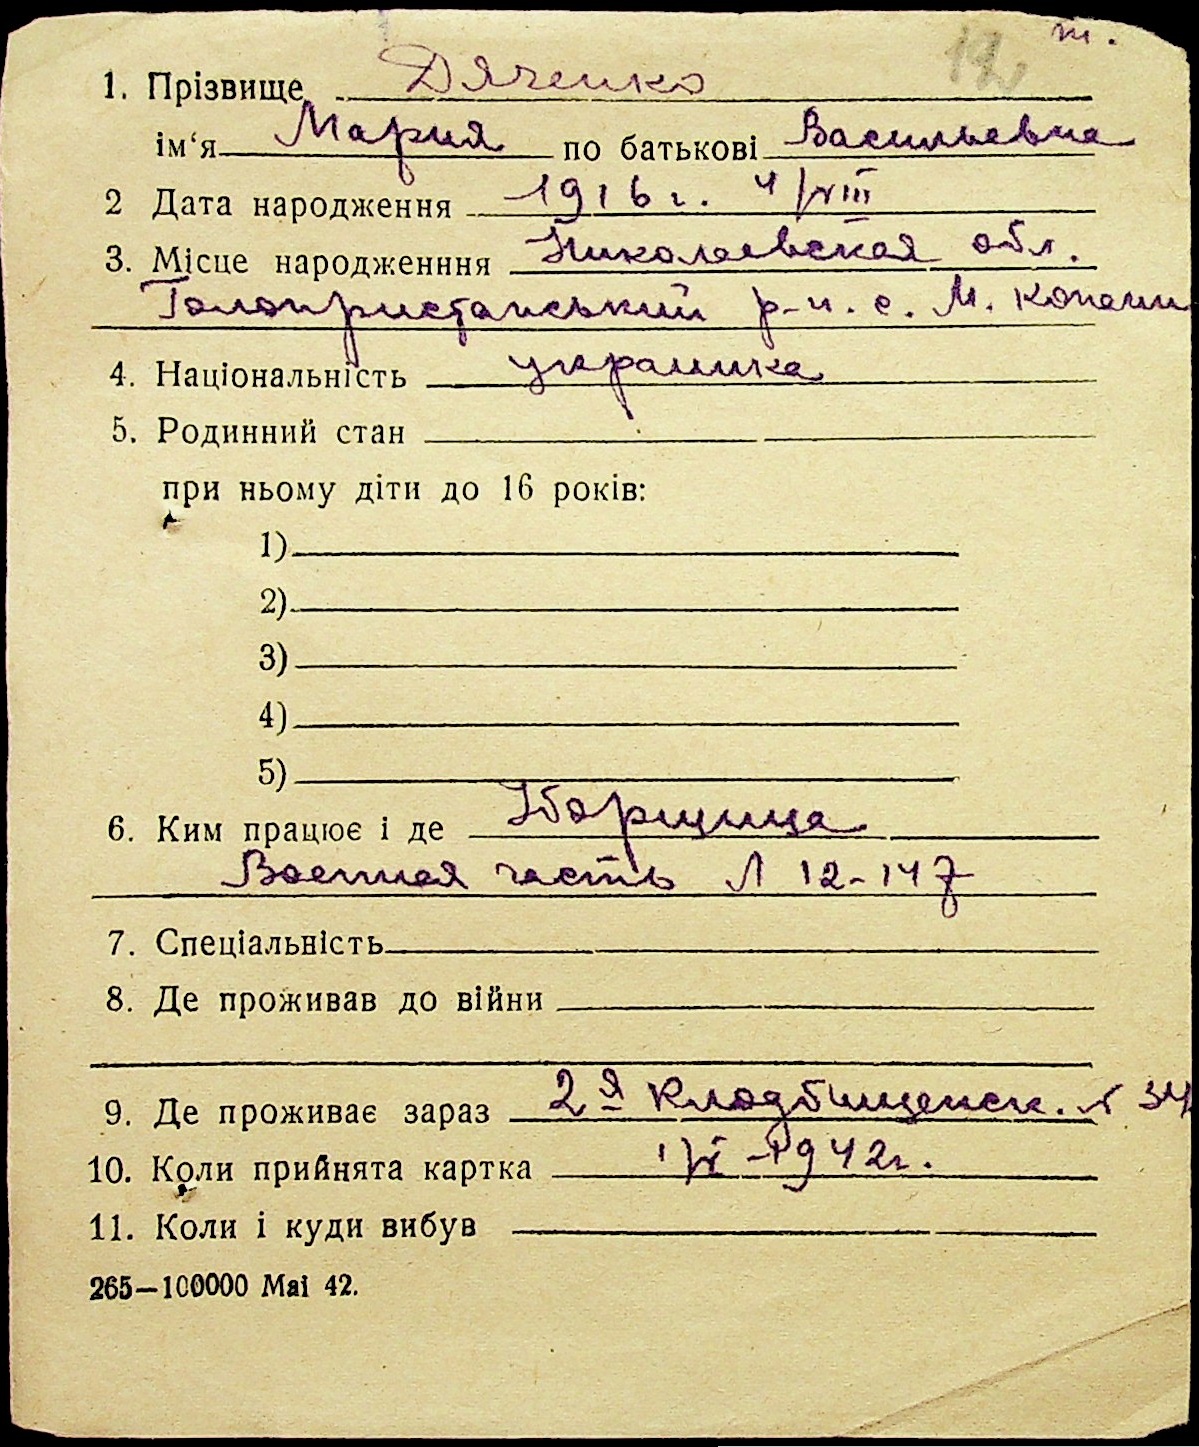 12 т.
1. Прізвище Дяченко
ім‘я Мария по батькові Васильевна
2 Дата народження 1916 г. 4/VIII
3. Місце народженння Николаевская обл.
Голопристанський р-н. с. М. Копани
4. Національність украинка
5. Родинний стан
при ньому діти до 16 років:
1)
2)
3)
4)
5)
6. Ким працює і де Уборщица
Военная часть Л 12-147
7. Спеціальність
8. Де проживав до війни
9. Де проживає зараз 2я Кладбищенск. 34
10. Коли прийнята картка 1/VI-1942г.
11. Коли і куди вибув
265—100000 Mai 42.